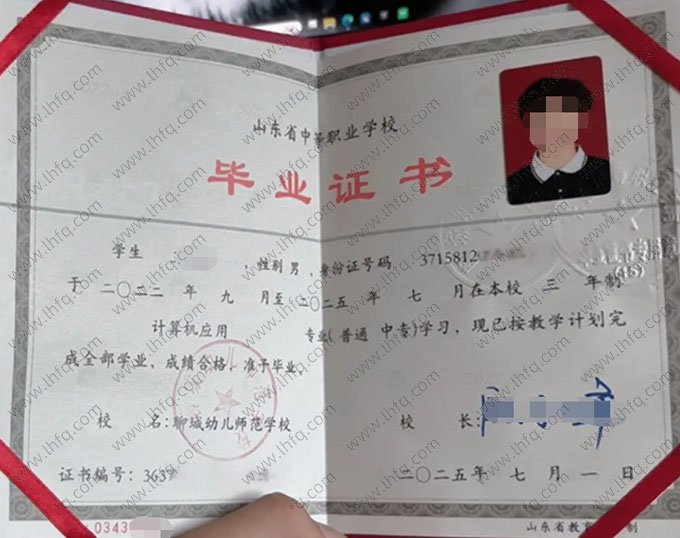 山东省中等职业学校
毕业证书
学生 ，性别 男 ，身份证号码 3715812
于 二〇二二 年 九 月至 二〇二五 年 七 月在本校 三 年制
计算机应用 专业( 普通 中专)学习，现已按教学计划完
成全部学业，成绩合格，准予毕业。
校 名：聊城幼儿师范学校 校 长：
证书编号：3637 二〇二五年 七 月 一 日
0343 山东省教育 制
www.lhfq.com